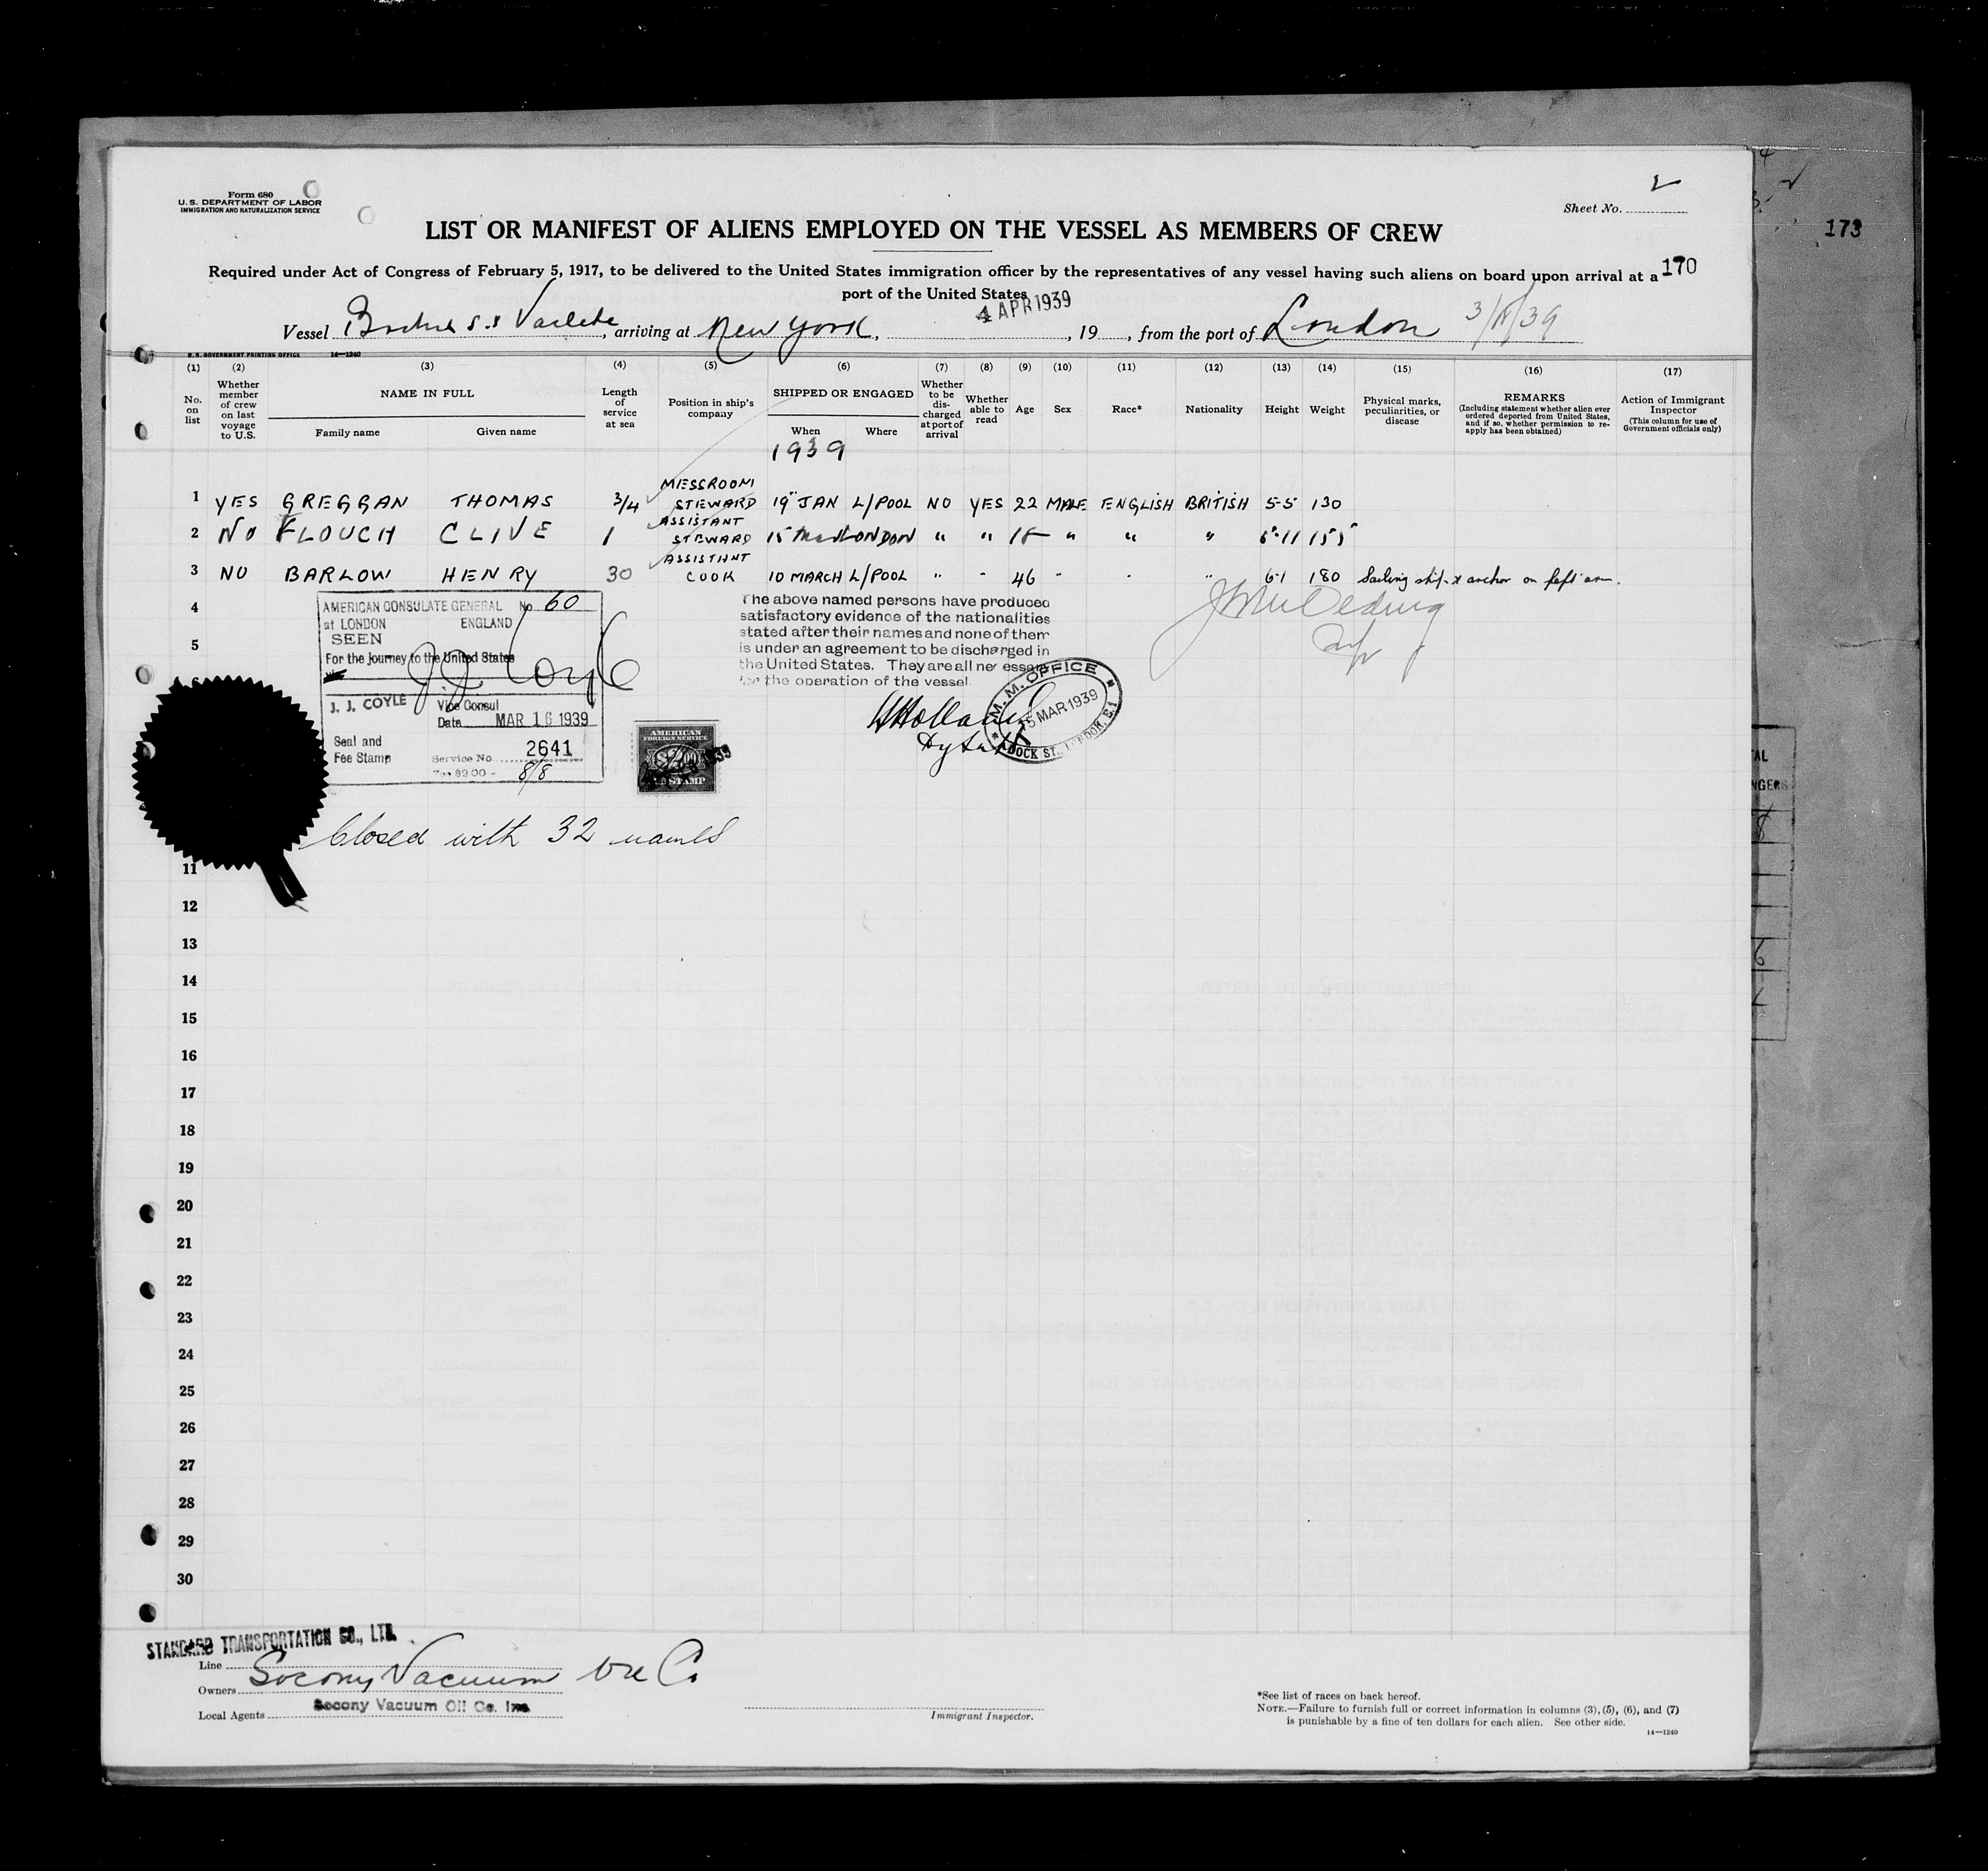 Form 680
U.S. DEPARTMENT OF LABOR
IMMIGRATION AND NATURALIZATION SERVICE
Sheet No. 2
173
LIST OR MANIFEST OF ALIENS EMPLOYED ON THE VESSEL AS MEMBERS OF CREW
Required under Act of Congress of February 5, 1917, to be delivered to the United States immigration officer by the representatives of any vessel having such aliens on board upon arrival at a
170
port of the United States
4 APR 1939
Vessel S.S , arriving at New York, , 19 , from the port of London
U.S. GOVERNMENT PRINTING OFFICE 14—1240
(1) (2) (3) (4) (5) (6) (7) (8) (9) (10) (11) (12) (13) (14) (15) (16) (17)
No. on list
Whether member of crew on last voyage to U.S.
NAME IN FULL
Family name Given name
Length of service at sea
Position in ship's company
SHIPPED OR ENGAGED
When Where
Whether to be discharged at port of arrival
Whether able to read
Age
Sex
Race*
Nationality
Height
Weight
Physical marks, peculiarities, or disease
REMARKS
(Including statement whether alien ever ordered deported from United States, and if so, whether permission to re-apply has been obtained)
Action of Immigrant Inspector
(This column for use of Government officials only)
1939
1 YES GREGGAN THOMAS 3/4 MESSROOM STEWARD 19 JAN L/POOL NO YES 22 MALE ENGLISH BRITISH 5-5 130
2 NO FLOUCH CLIVE 1 ASSISTANT STEWARD 15 LONDON " " " " " 155
3 NO BARLOW HENRY 30 ASSISTANT COOK 10 MARCH L/POOL " - 46 - - " 6-1 180 Sailing ship & anchor on left arm.
4
5
AMERICAN CONSULATE GENERAL No 60
at LONDON ENGLAND
SEEN
For the journey to the United States
J. J. Coyle
J. J. COYLE Vice Consul
Date MAR 16 1939
Seal and
Fee Stamp
Service No. 2641
AMERICAN
FOREIGN SERVICE
The above named persons have produced
satisfactory evidence of the nationalities
stated after their names and none of them
is under an agreement to be discharged in
the United States. They are all necessary
for the operation of the vessel.
M.M. OFFICE
15 MAR 1939
DOCK ST., LONDON, E.1
Closed with 32 names
11
12
13
14
15
16
17
18
19
20
21
22
23
24
25
26
27
28
29
30
STANDARD TRANSPORTATION CO., LTD.
Line
Owners Socony Vacuum Oil Co
Local Agents Socony Vacuum Oil Co. Inc.
Immigrant Inspector.
*See list of races on back hereof.
NOTE.—Failure to furnish full or correct information in columns (3), (5), (6), and (7)
is punishable by a fine of ten dollars for each alien. See other side.
14—1240